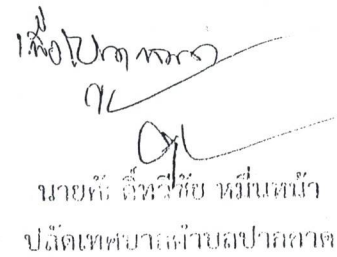 เพื่อโปรดทราบ
นายศักดิ์ทวีชัย หมื่นหน้า
ปลัดเทศบาลตำบลปากคาด